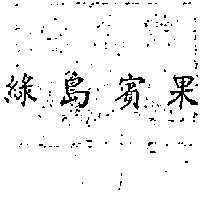 綠島賓果